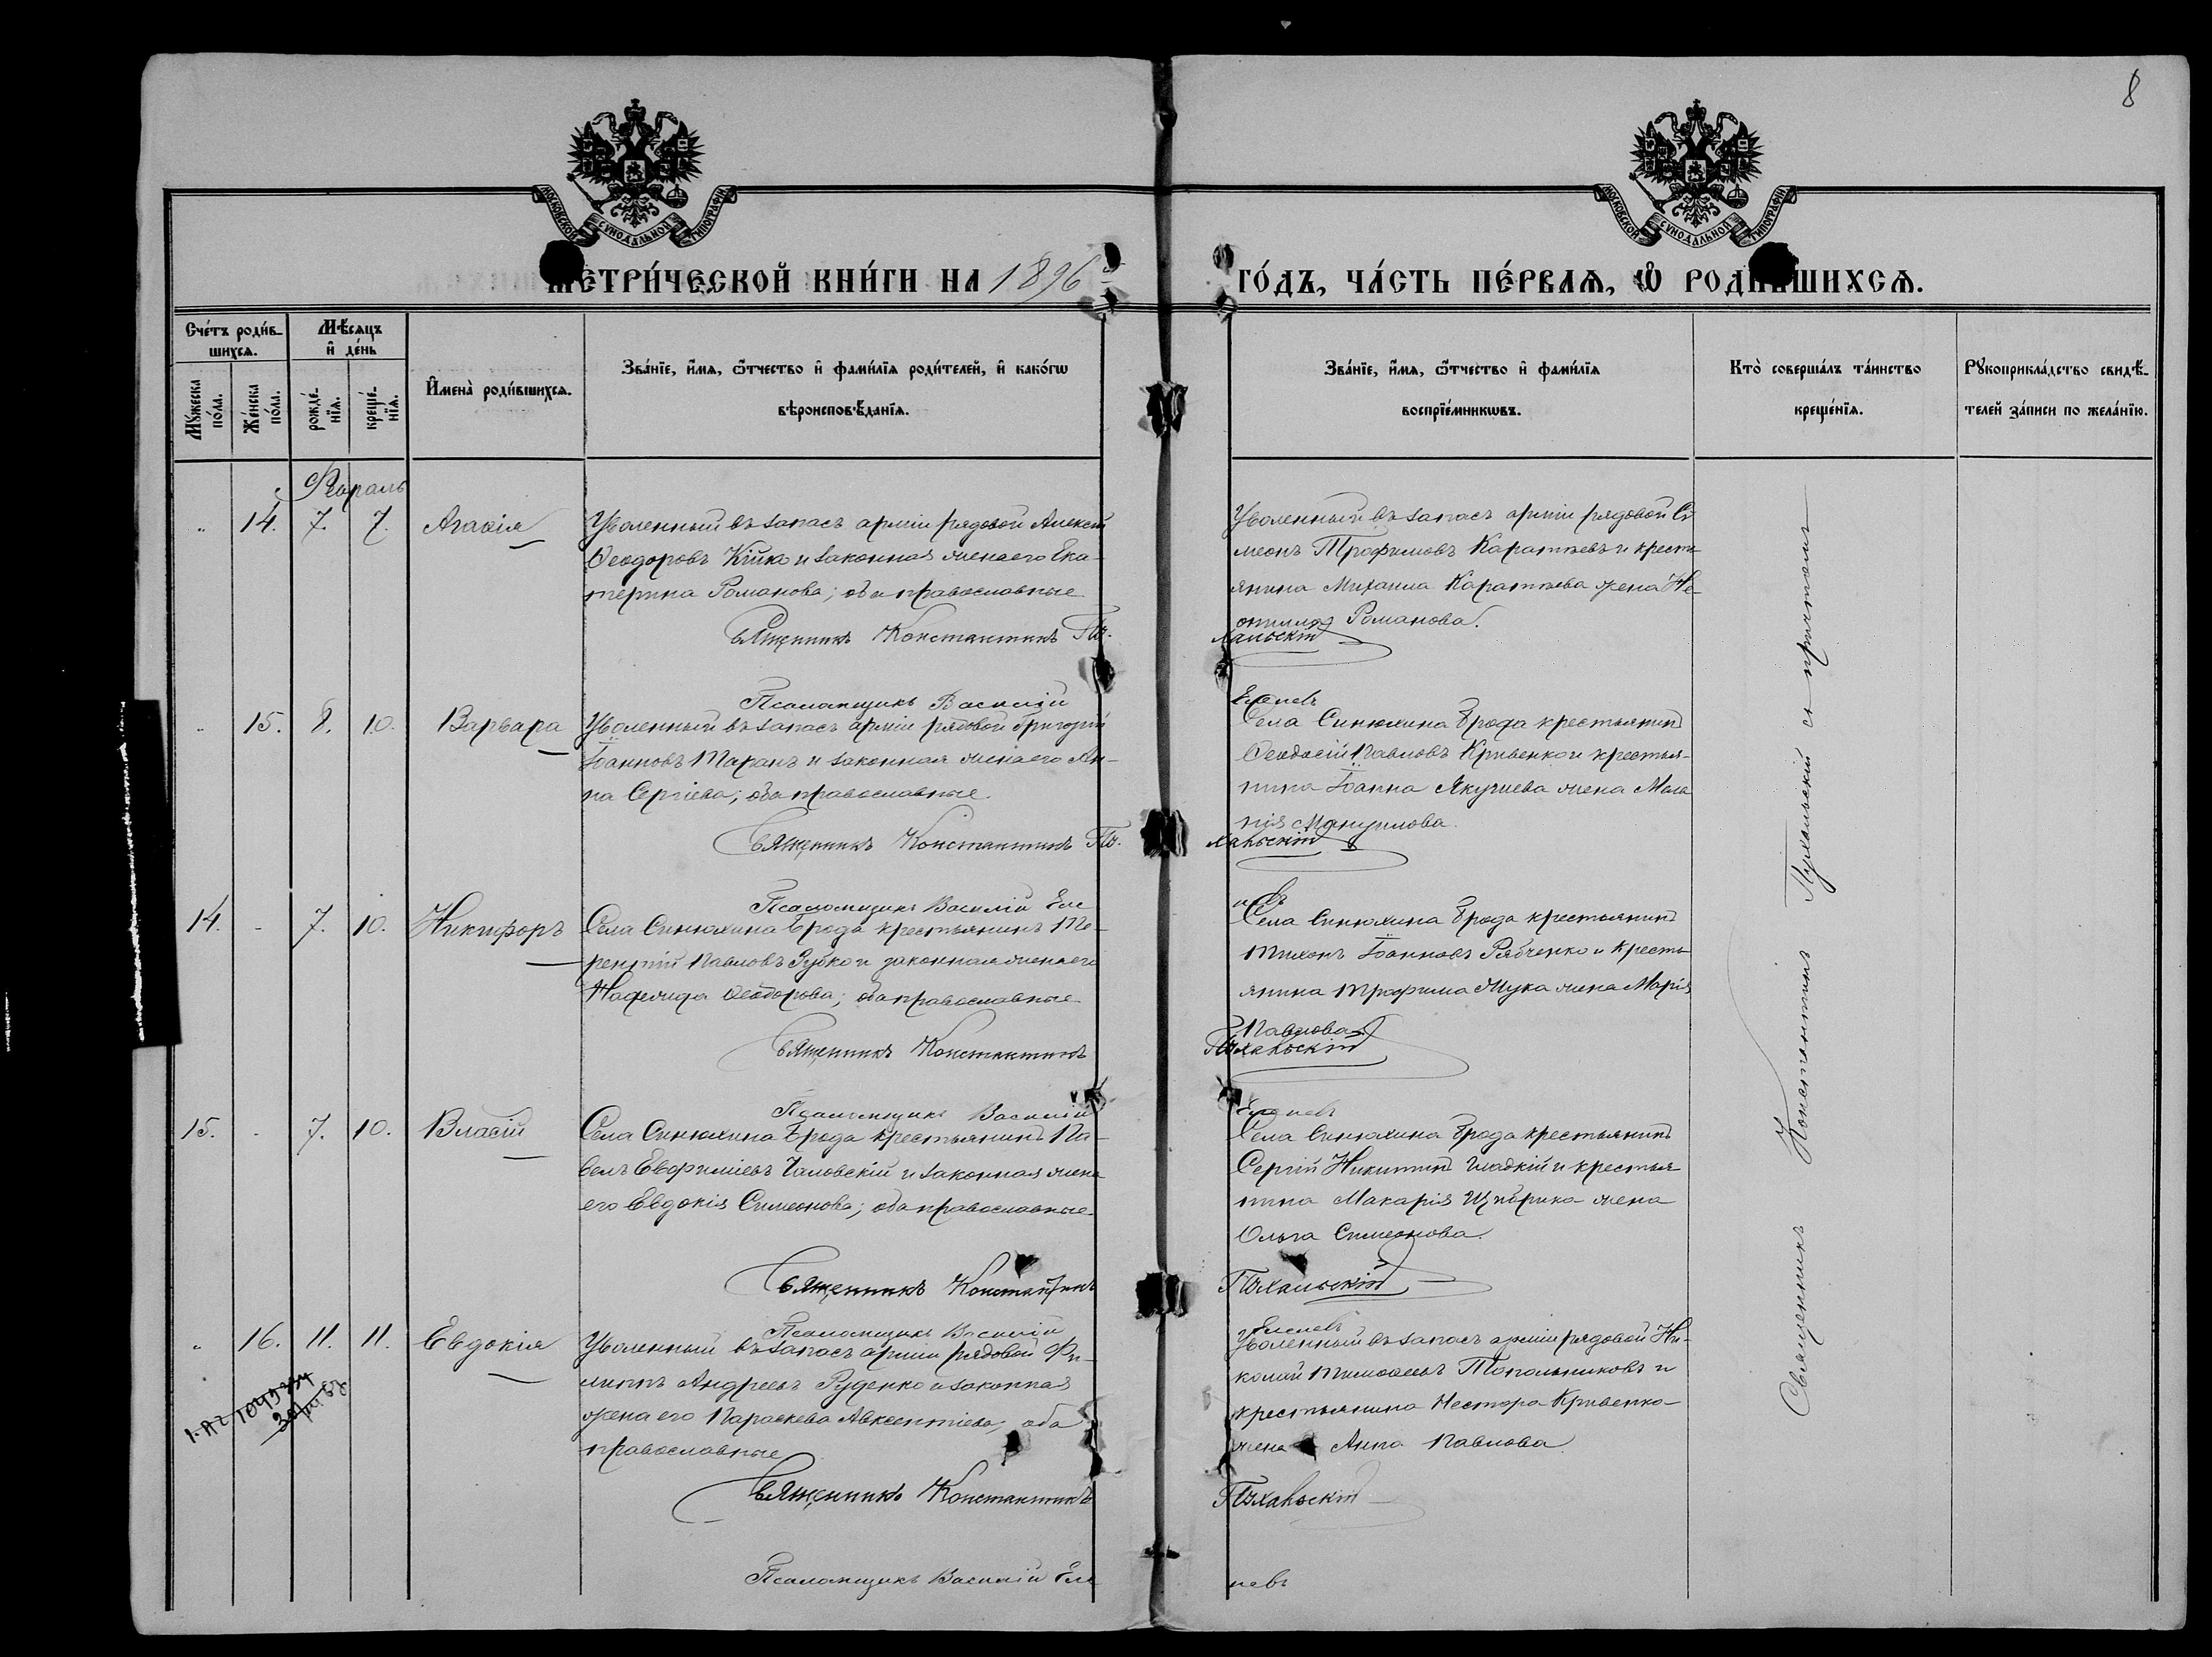 8
МОСКОВСКОЙ СѴНОДАЛЬНОЙ ТИПОГРАФІИ
МОСКОВСКОЙ СѴНОДАЛЬНОЙ ТИПОГРАФІИ
МЕТРИ́ЧЕСКОЙ КНИ́ГИ НА 1896 ГО́ДЪ, ЧА́СТЬ ПЕ́РВАѦ, Ѡ҆ РОДИ́ВШИХСѦ.
Сче́тъ роди́в-
шихсѧ.
Мꙋ́жеска по́ла.
Же́нска по́ла.
Мѣ́сѧцъ
и҆ де́нь
рожде́-нїѧ.
креще́-нїѧ.
И҆мена̀ роди́вшихсѧ.
Зва́нїе, и҆́мѧ, ѻ҆́тчество и҆ фами́лїѧ роди́телей, и҆ како́гѡ
вѣроисповѣ́данїѧ.
Зва́нїе, и҆́мѧ, ѻ҆́тчество и҆ фами́лїѧ
воспрїе́мникѡвъ.
Кто̀ соверша́лъ та́инство
креще́нїѧ.
Рꙋкоприкла́дство свидѣ́-
телей за́писи по жела́нїю.
14. 7. 7. Агаѳія
Уволенный въ запасъ арміи рядовой Алексій
Ѳеодоровъ Кійко и законная жена его Ека-
терина Романова; оба православные
Священникъ Константинъ Пу-
хальскій
Уволенный въ запасъ арміи рядовой Си-
меонъ Трофимовъ Каратѣевъ и кресть-
янина Михаила Каратѣева жена Не-
онила Романова.
Псаломщикъ Василій
15. 8. 10. Варвара
Уволенный въ запасъ арміи рядовой Григорій
Іоанновъ Таранъ и законная жена его Ан-
на Сергіева; оба православные.
Священникъ Константинъ Пу-
хальскій
Села Синюхина Брода крестьянинъ
Ѳеодосій Павловъ Кривенко и крестья-
нина Іоанна Якушева жена Мела-
нія Мануилова.
Псаломщикъ Василій
14. - 7. 10. Никифоръ
Села Синюхина Брода крестьянинъ Те-
рентій Павловъ Зубко и законная жена его
Надежда Ѳеодорова; оба православные
Священникъ Константинъ
Пухальскій
Села Синюхина Брода крестьянинъ
Тихонъ Іоанновъ Рябченко и кресть-
янина Трофима Жука жена Марія
Павлова.
Псаломщикъ Василій
15. - 7. 10. Власій
Села Синюхина Брода крестьянинъ Па-
велъ Евфиміевъ Чаловскій и законная жена
его Евдокія Симеонова; оба православные.
Священникъ Константинъ
Пухальскій
Села Синюхина Брода крестьянинъ
Сергій Никитинъ Гладкій и крестья-
нина Макарія жена
Ольга Симеонова.
Псаломщикъ Василій
16. 11. 11. Евдокія
Уволенный въ запасъ арміи рядовой Фи-
липпъ Андреевъ Руденко и законная
жена его Параскева Авксентіева, оба
православные
Священникъ Константинъ
Пухальскій
Уволенный въ запасъ арміи рядовой Ни-
колай Тимоѳеевъ Топольниковъ и
крестьянина Нестора Кривенко-
жена Анна Павлова.
Псаломщикъ Василій
Священникъ Константинъ Пухальскій съ причтомъ